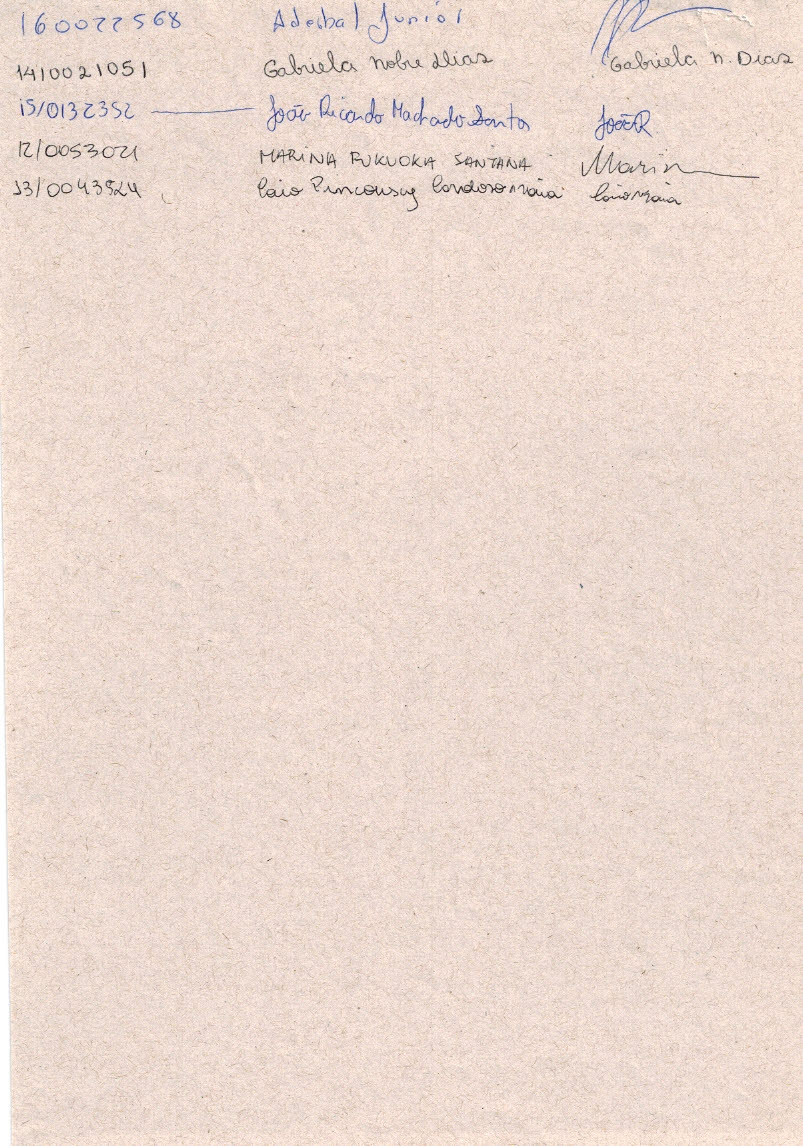 160022568 Aderbal Junior
14/0021051 Gabriela Nobre Dias Gabriela N. Dias
15/0132352 João Ricardo Machado Santos JoãoR
12/0053021 MARINA FUKUOKA SANTANA Marin
13/0043924 Caio Cardoso Maia Caio Maia